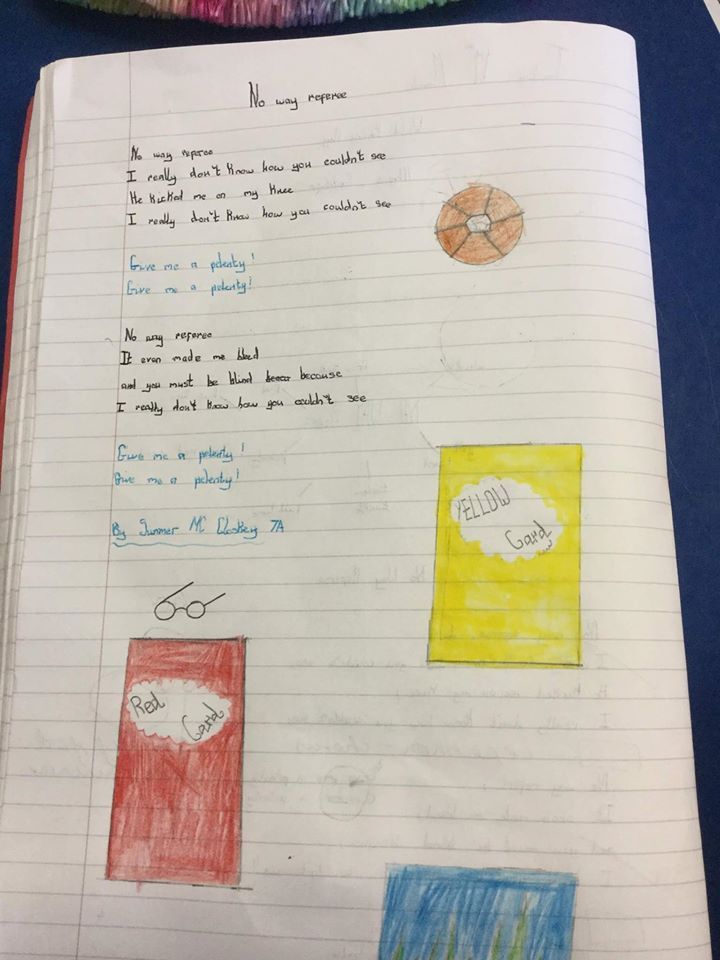 No way referee
No way referee
I really don't know how you couldn't see
He kicked me on my knee
I really don't know how you couldn't see
Give me a pelenty!
Give me a pelenty!
No way referee
It even made me bleed
and you must be blind because
I really don't know how you couldn't see
Give me a pelenty!
Give me a pelenty!
By Summer Mc Closkey 7A
YELLOW
Card
Red
Card